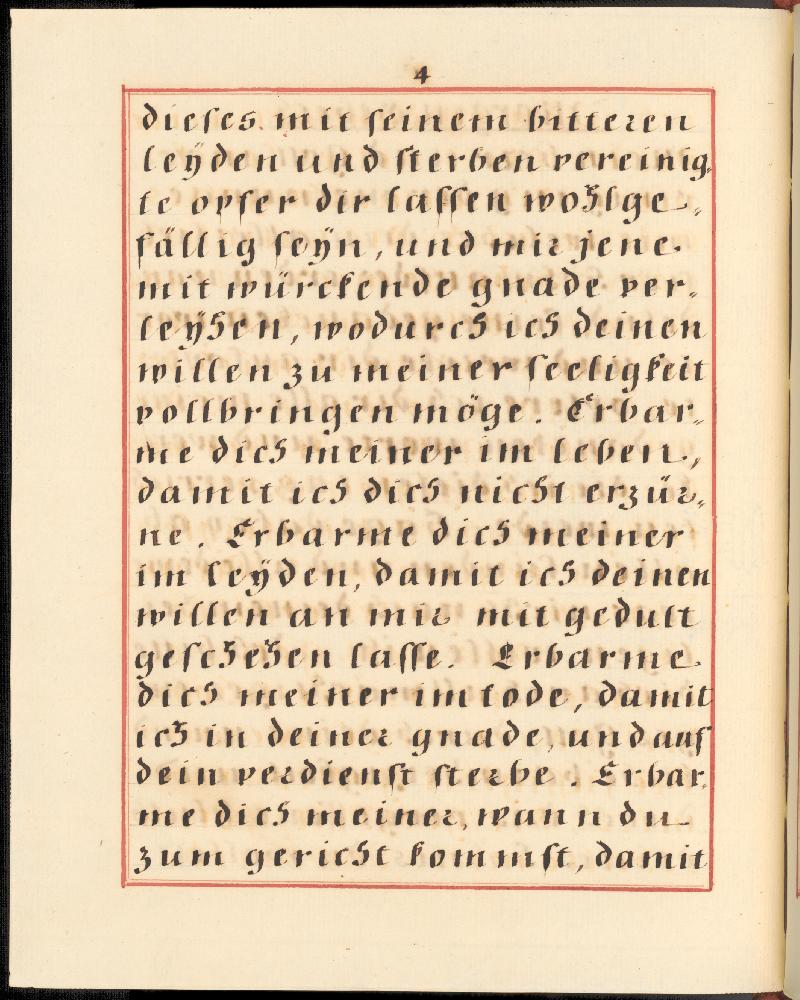 4
dieses mit seinem bitteren
leÿden und sterben vereinig„
te opfer dir lassen wohlge„
fällig seÿn, und mir jene
mit würckende gnade ver„
leÿhen, wodurch ich deinen
willen zu meiner seeligkeit
vollbringen möge. Erbar„
me dich meiner im leben,
damit ich dich nicht erzür„
ne. Erbarme dich meiner
im leÿden, damit ich deinen
willen an mir mit gedult
geschehen lasse. Erbarme
dich meiner im tode, damit
ich in deiner gnade, und auf
dein verdienst sterbe. Erbar„
me dich meiner, wann du
zum gericht kommst, damit